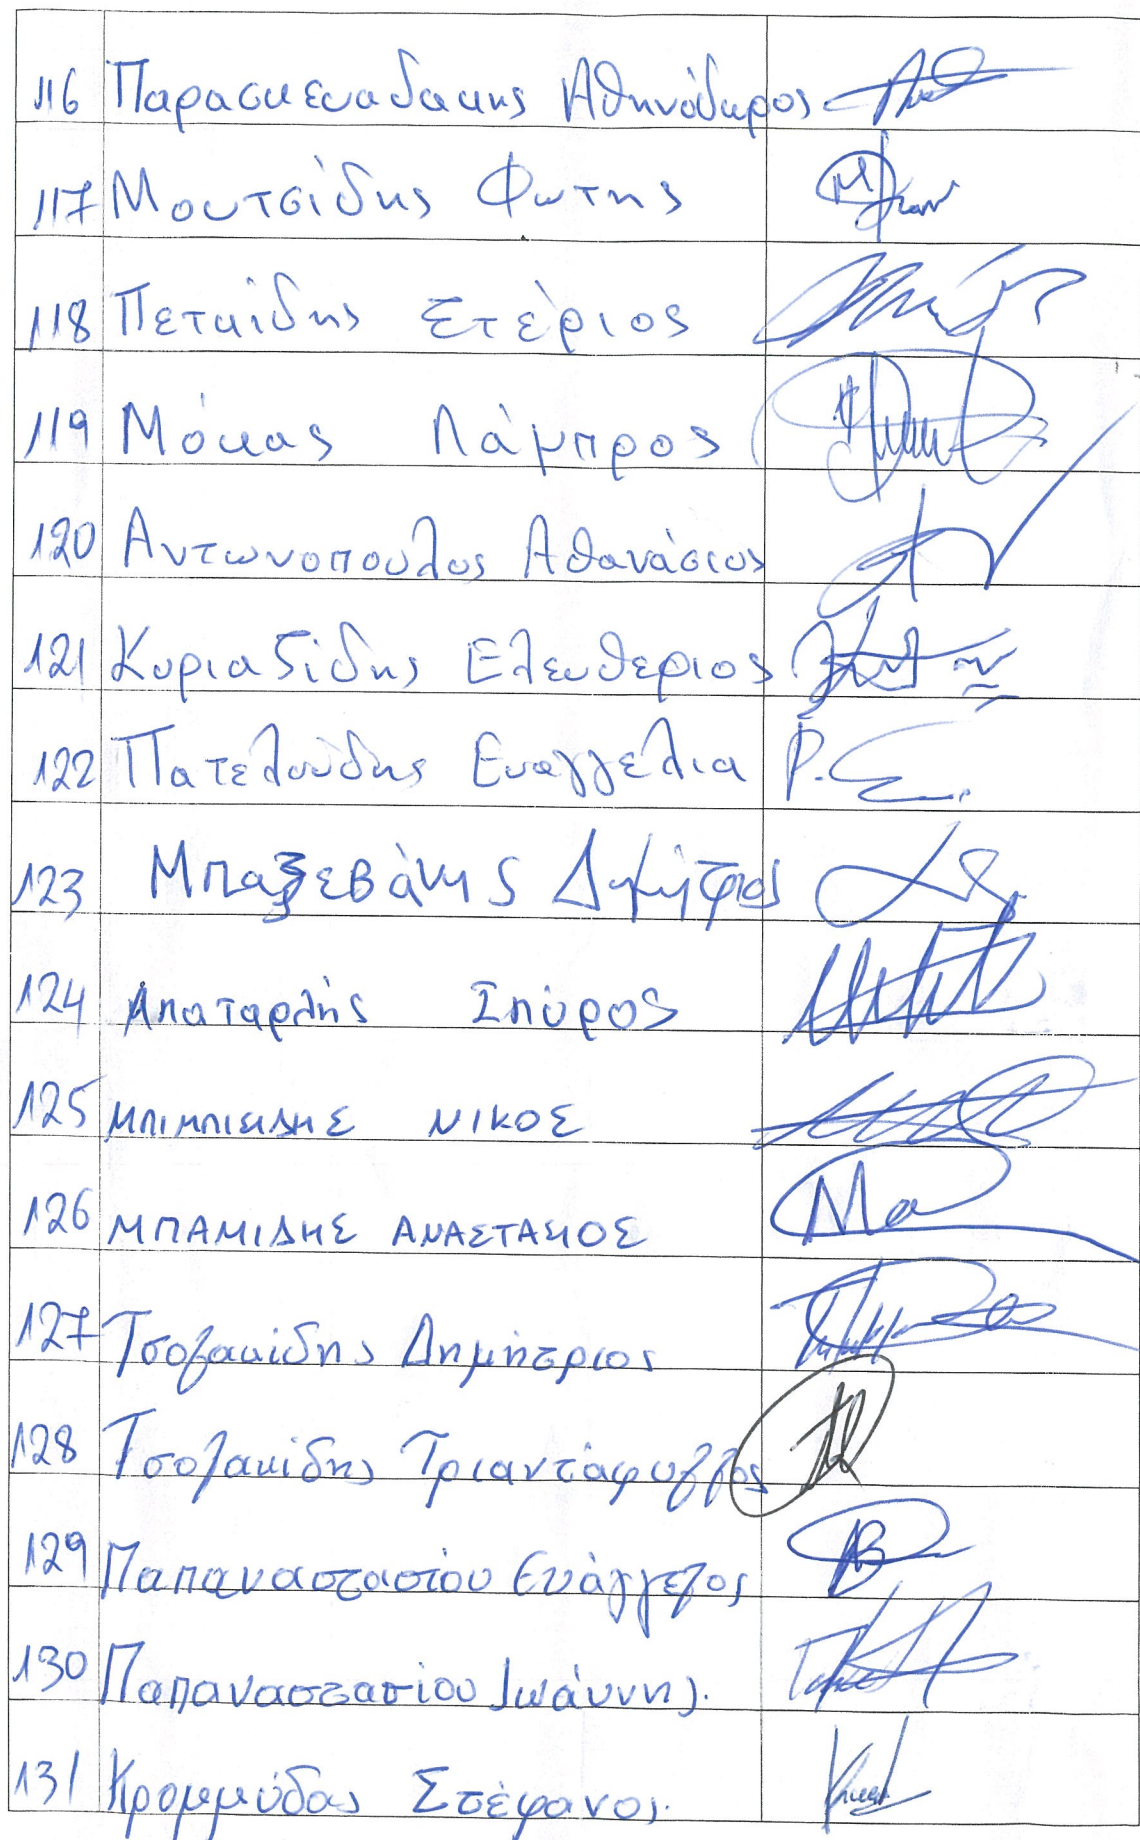 116 Παρασκευαδακης Αθηνόδωρος
117 Μουτσίδης Φωτης
118 Πετκίδης Στέριος
119 Μόκας Λάμπρος
120 Αντωνοπουλος Αθανάσιος
121 Κυριαζίδης Ελευθεριος
122 Πατελούδης Ευαγγελια Ρ.Ε.
123 Μπαξεβάνης Δημήτριος
124 Σπύρος
125 ΝΙΚΟΣ
126 ΜΠΑΜΙΔΗΣ ΑΝΑΣΤΑΣΙΟΣ
127 Τσολακίδης Δημήτριος
128 Τσολακίδης Τριαντάφυλλος
129 Παπαναστασίου Ευάγγελος
130 Παπαναστασίου Ιωάννης.
131 Κρομμύδας Στέφανος.